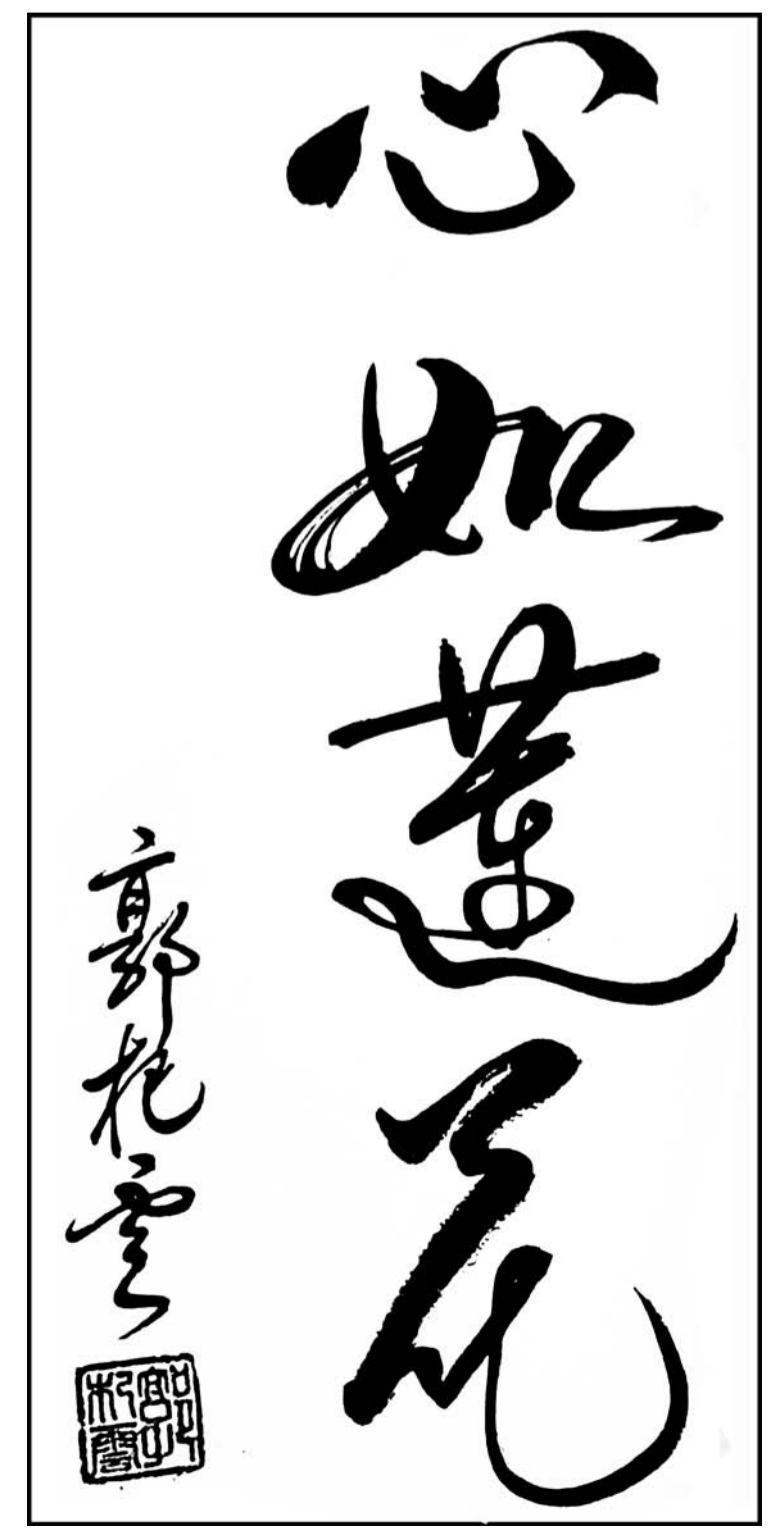 心如蓮花
郭雲
郭雲